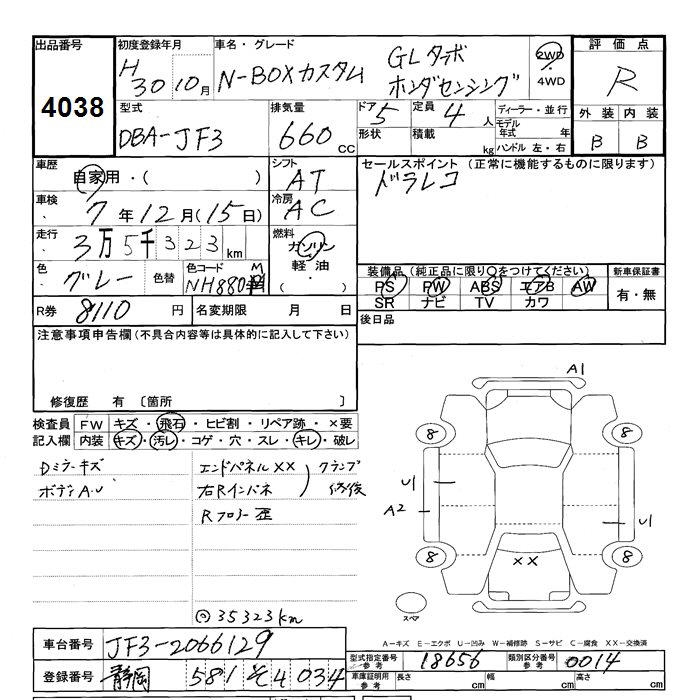 出品番号
4038
初度登録年月
H30 10月
車名・グレード
N-BOXカスタム
GLターボ
ホンダセンシング
2WD
4WD
評価点
R
外装 内装
B B
型式
DBA-JF3
排気量
660 CC
ドア 5
形状
定員 4 人
積載 kg
ディーラー・並行
モデル年式 年
ハンドル 左・右
車歴
自家用・( )
シフト
AT
セールスポイント (正常に機能するものに限ります)
ドラレコ
車検
7年12月(15日)
冷房
AC
走行
3万5千323km
燃料
ガソリン
軽油
・
( )
色
グレー
色替
色コード
NH880M
装備品 (純正品に限り○をつけてください)
PS PW ABS エアB AW
SR ナビ TV カワ
新車保証書
有・無
R券 8110 円
名変期限 月 日
後日品
注意事項申告欄 (不具合内容等は具体的に記入して下さい)
修復歴 有 〔箇所 〕
検査員記入欄
FW キズ・飛石・ヒビ割・リペア跡・×要
内装 キズ・汚レ・コゲ・穴・スレ・キレ・破レ
Dミラーキズ
ボディA.U
エンドパネルXX
右Rインパネ
クランプ
修復
Rフロアー歪
◎35323km
A1
8 8
U1
A2
U1
XX
8 8
スペア
A-キズ E-エクボ U-凹み W-補修跡 S-サビ C-腐食 XX-交換済
車台番号 JF3-2066129
登録番号 静岡 581 そ 4034
型式指定番号 参考 18656
類別区分番号 参考 0014
車庫証明用 参考 長さ cm 幅 cm 高さ cm